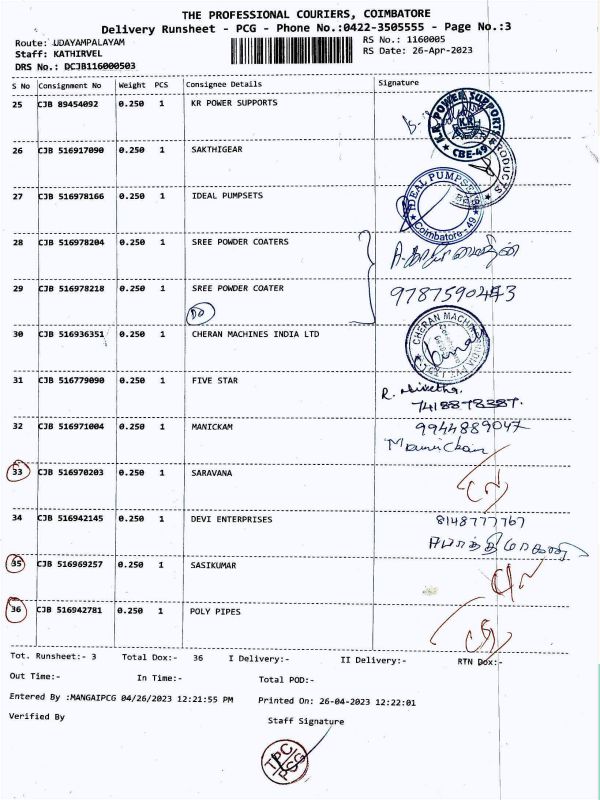 THE PROFESSIONAL COURIERS, COIMBATORE
Delivery Runsheet - PCG - Phone No.:0422-3505555 - Page No.:3
Route: UDAYAMPALAYAM RS No.: 1160005
Staff: KATHIRVEL RS Date: 26-Apr-2023
DRS No.: DCJB116000503
S No Consignment No Weight PCS Consignee Details Signature
25 CJB 89454092 0.250 1 KR POWER SUPPORTS
K.R. POWER SUPPORTS
CBE-49
26 CJB 516917090 0.250 1 SAKTHIGEAR
27 CJB 516978166 0.250 1 IDEAL PUMPSETS
IDEAL PUMPSE
Coimbatore - 49
28 CJB 516978204 0.250 1 SREE POWDER COATERS
29 CJB 516978218 0.250 1 SREE POWDER COATER
DO
30 CJB 516936351 0.250 1 CHERAN MACHINES INDIA LTD
CHERAN MACHINES INDIA PVT LTD
31 CJB 516779090 0.250 1 FIVE STAR R. Niketha.
7418878387.
32 CJB 516971004 0.250 1 MANICKAM 9944889047
Manickam
33 CJB 516970203 0.250 1 SARAVANA
34 CJB 516942145 0.250 1 DEVI ENTERPRISES 8148777767
35 CJB 516969257 0.250 1 SASIKUMAR
36 CJB 516942781 0.250 1 POLY PIPES
Tot. Runsheet:- 3 Total Dox:- 36 I Delivery:- II Delivery:- RTN Dox:-
Out Time:- In Time:- Total POD:-
Entered By :MANGAIPCG 04/26/2023 12:21:55 PM Printed On: 26-04-2023 12:22:01
Verified By Staff Signature
TPC
PCG